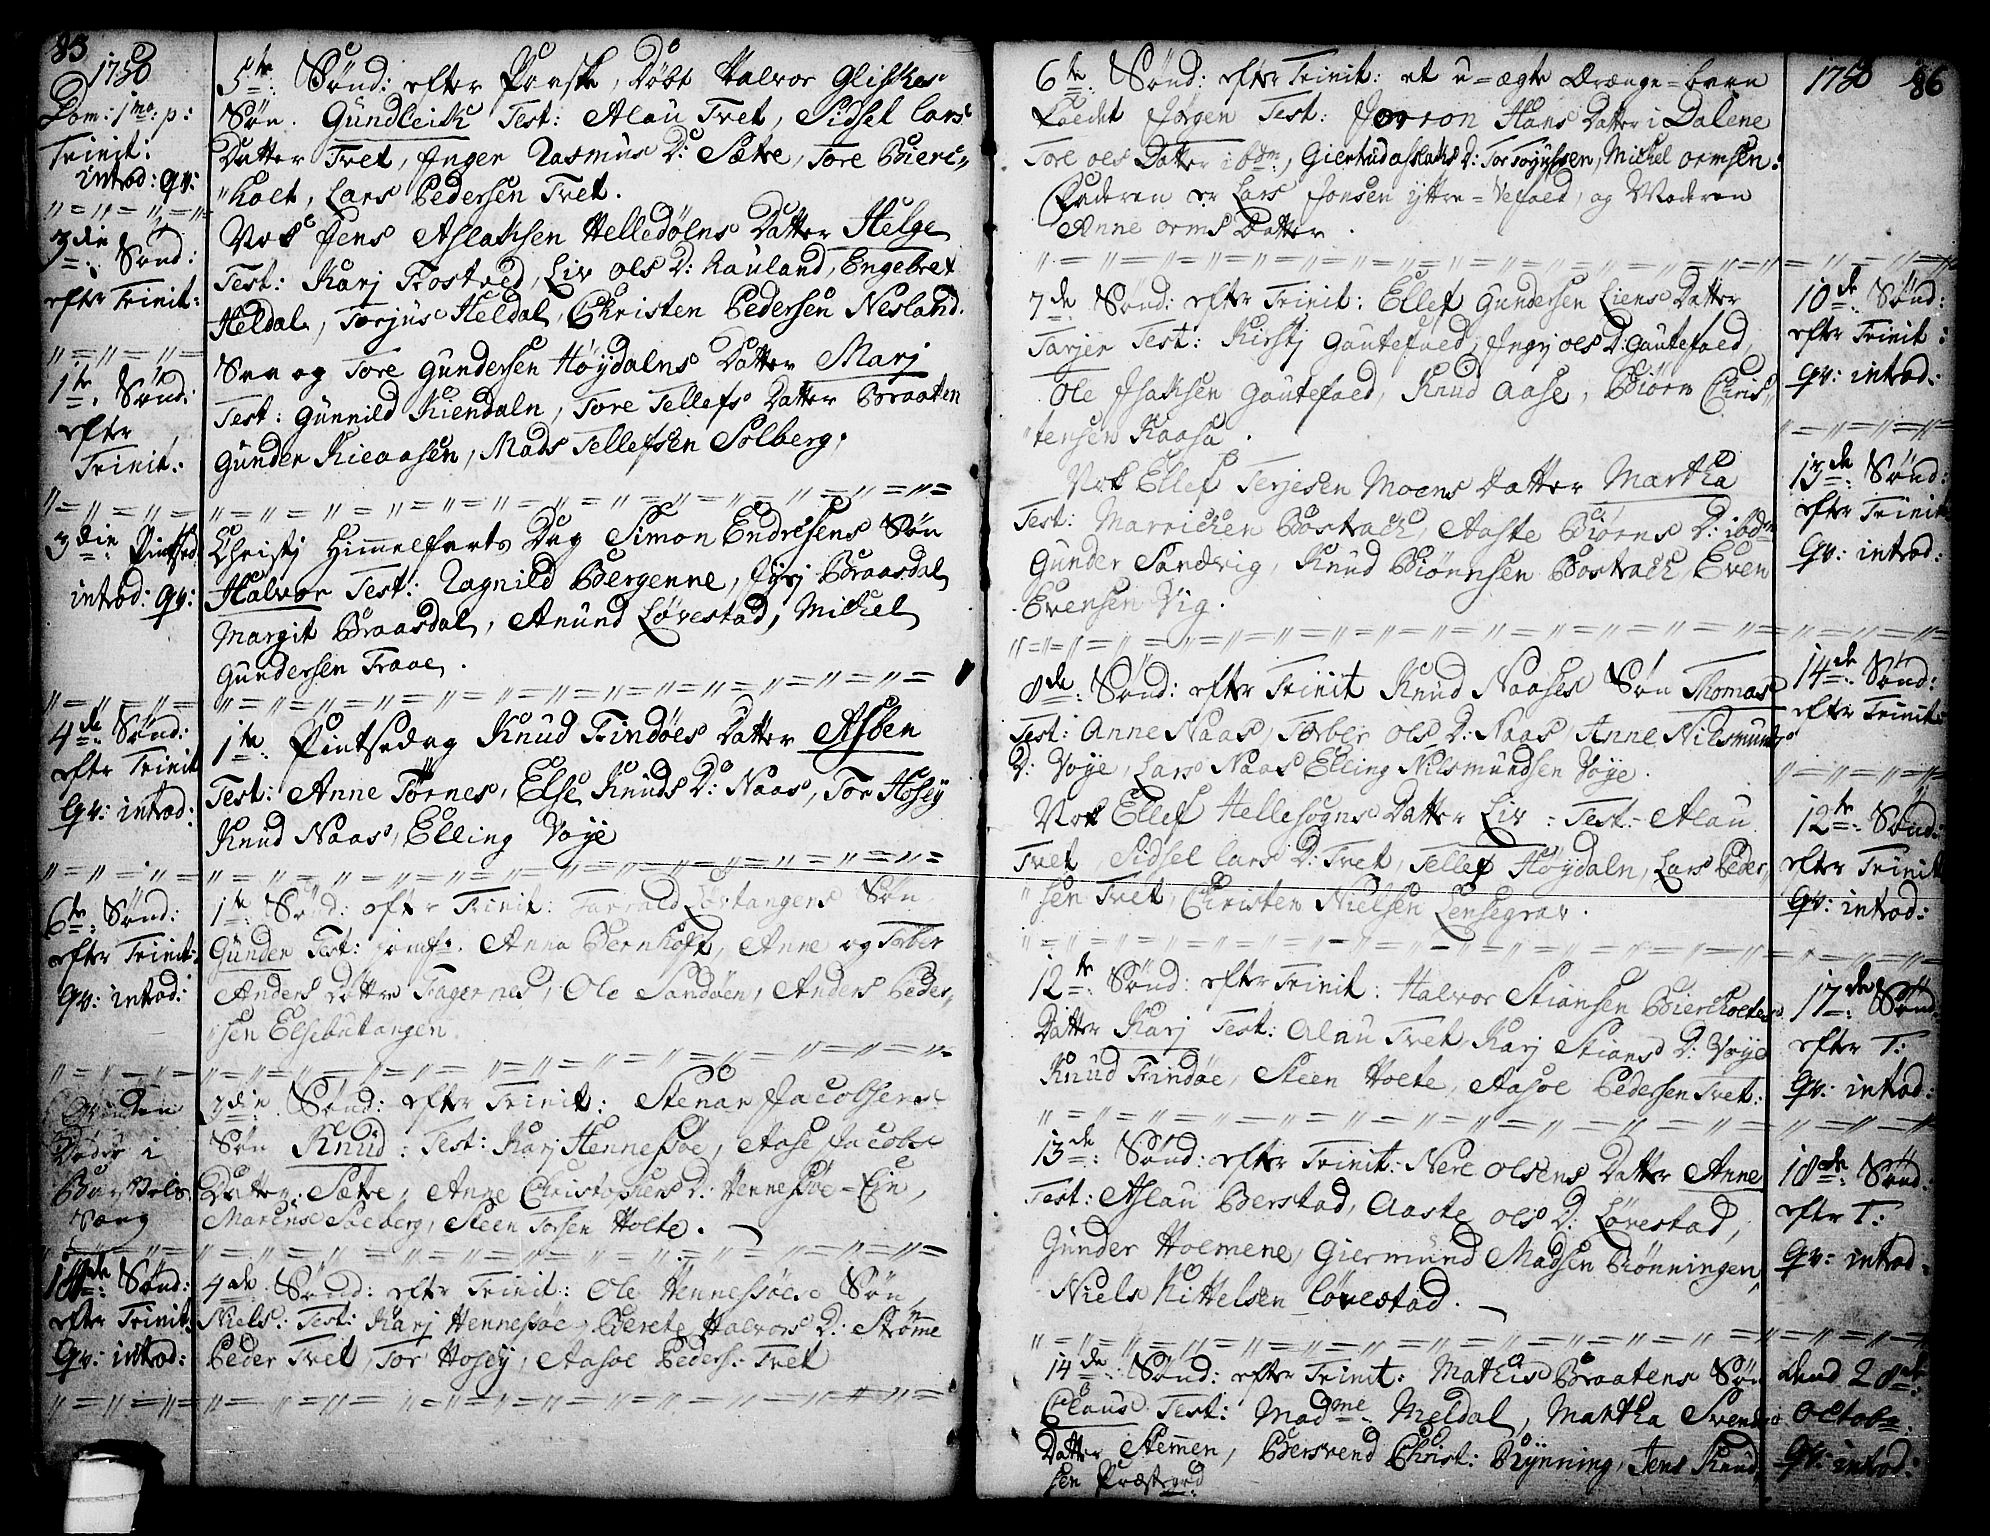 85
1750
Dom: 1mo: p:
Trinit:
introd: qv:
3die Sønd:
efter Trinit:
1te Sønd:
efter
Trinit:
3die Pintsed:
introd: qv:
4de Sønd:
efter Trinit
Qv: introd:
6te Sønd:
efter Trinit:
Qv: introd:
Qvinden
Døde i
Barsels
Sæng
10de Sønd:
efter Trinit:
Qv: introd:
5te Sønd: efter Paaske, Døbt Halvor Glisches
Søn. Gundleich Test: Alau Tvet, Sidsel Lars
Datter Tvet, Inger Rasmus D: Sætre, Tore Bierc-
holt, Lars Pedersen Tvet.
Nok Jens Aslaksen Helledølns Datter Helge
Test: Karj Frostved, Liv ols D: Rauland, Engebret
Heldal, Torjus Heldal, Christen Pedersen Nesland.
Svn og Tore Gundersen Høydalns Datter Marj
Test: Gunnild Kiendaln, Tore Tellefs Datter Braaten
Gunder Kieaasen, Mads Tellefsen Solberg.
Christj Himmelfarts Dag Simon Endresens Søn
Halvor Test: Ragnild Bergenne, Jyrj Braasdal
Margit Braasdal, Anund Løvestad, Michel
Gundersen Traae.
1te Pintsedag Knud Trindøes Datter Asben
Test: Anne Tørnes, Else Knuds D: Naas, Tor Hosey
Knud Naas, Elling Voye
1te Sønd: efter Trinit: Tarrald Lørtangens Søn
Gunder Test: jomfr. Anna Bernhoft, Anne og Torber
Anders Døttre Fagernes, Ole Sandøen, Anders Peder-
sen Elsebutangen
3die Sønd: efter Trinit: Stenar Jacobsens
Søn Knud: Test: Karj Hennessøe, Aase Jacobs
Datter Sætre, Anne Christophers D: Hennessøe-Ejn,
Marcus Søeberg, Steen Torsen Holte.
4de Sønd: efter Trinit: Ole Hennessøes Søn
Niels: Test: Karj Hennessøe, Berete Halvors D: Strømme
Peder Tvet, Tor Hosey, Aasoe Peders: Tvet
6te Sønd: efter Trinit: et u-ægte Drænge-barn
kaldet Jørgen Test: Jorron Hans Datter i Dalene
Tore ols Datter ibdm, Giertrud Aslachs D: Tor Torjussen, Michel Ormsen:
Faderen er Lars Jonsen yttre-Vefald, og Moderen
Anne Orms Datter.
7de Sønd: efter Trinit: Ellef Gundersen Liens Datter
Tarjer Test: Kirstj Gautefald, Ingrj ols D: Gautefald,
Ole Isaksen Gautefald, Knud Aase, Biørn Chris-
tensen Kaasa.
Nok Ellef Terjesen Moens Datter Martha
Test: Marrichen Bostrach, Aaste Biørns D: ibdm
Gunder Sandvig, Knud Biønnsen Bostrach, Even
Evensen Vig.
8de Sønd: efter Trinit Knud Naases Søn Thomas
Test: Anne Naas, Torber ols D: Naas, Anne Nilsmunds
D: Voye, Lars Naas Elling Nilsmundsen Voye.
Nok Ellef Hellesogns Datter Liv: Test: Alau
Tvet, Sidsel Lars D: Tvet, Tellef Høydaln, Lars Peder-
sen Tvet, Christen Nielsen Lensegrav.
12te Sønd: efter Trinit: Halvor Stiansen Biercholtes
Datter Karj Test: Alau Tvet Karj Stians D: Voye
Knud Trindøe, Steen Holte, Aasoe Pedersen Tvet:
13de Sønd: efter Trinit: Nere Olsens Datter Anne
Test: Aslau Berstad, Aaste ols D: Løvestad,
Gunder Holmene, Giermund Madsen Rønningen,
Niels Kittelsen Løvestad.
14de Sønd: efter Trinit: Mathis Braatens Søn
Claus Test: Madme Meldal, Martha Svends
Datter Stemmen, Bersvend Christ: Rynning, Jens Knud-
sen Præstgrd:
1750 86
10de Sønd:
efter Trinit:
qv: introd:
13de Sønd:
efter Trinit
Qv: introd:
14de Sønd:
efter Trinit:
12te Sønd:
efter Trinit
Qv: introd:
17de Sønd:
efter T:
Qv: introd:
18de Sønd:
efter T:
Qv: introd:
dend 28de
Octobr:
Qv: introd: